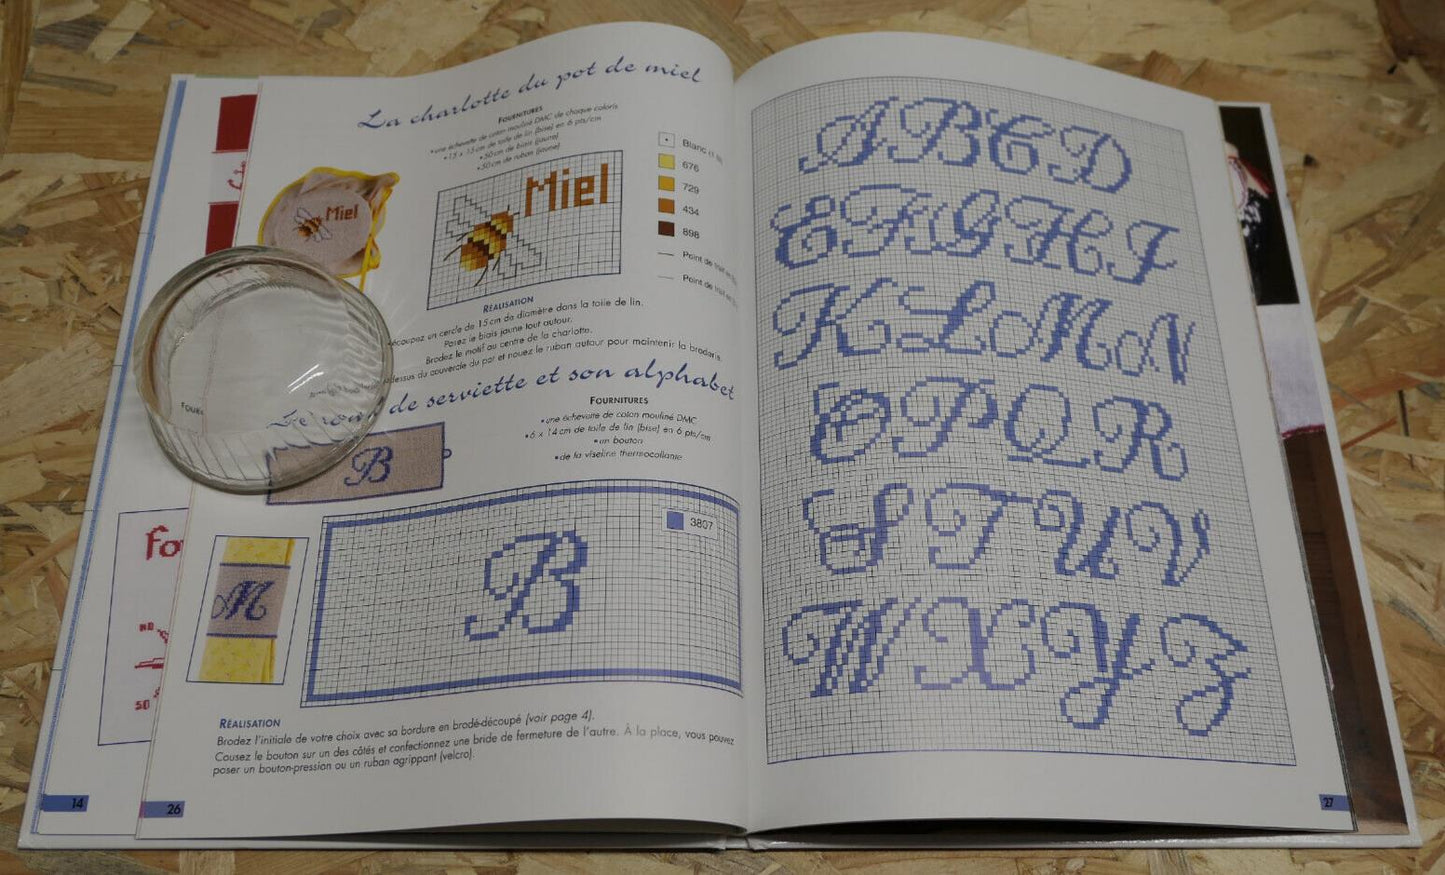 La charlotte du pot de miel
FOURNITURES
•une échevette de coton mouliné DMC de chaque coloris
•15 x 15cm de toile de lin (bise) en 6 pts/cm
•50cm de biais (jaune)
•50cm de ruban (jaune)
Miel
Miel
Blanc
676
729
434
898
Point de
Point de
RÉALISATION
écoupez un cercle de 15cm de diamètre dans la toile de lin.
Posez le biais jaune tout autour.
Brodez le motif au centre de la charlotte.
dessus du couvercle du pot et nouez le ruban autour pour maintenir la broderie.
de serviette et son alphabet
FOURNITURES
•une échevette de coton mouliné DMC
•6 x 14cm de toile de lin (bise) en 6 pts/cm
•un bouton
•de la viseline thermocollante
B
M
B
3807
RÉALISATION
Brodez l'initiale de votre choix avec sa bordure en brodé-découpé (voir page 4).
Cousez le bouton sur un des côtés et confectionnez une bride de fermeture de l'autre. À la place, vous pouvez
poser un bouton-pression ou un ruban agrippant (velcro).
fo
50
14
26
A B C D
E F G H I
K L M N
O P Q R
S T U V
W X Y Z
27